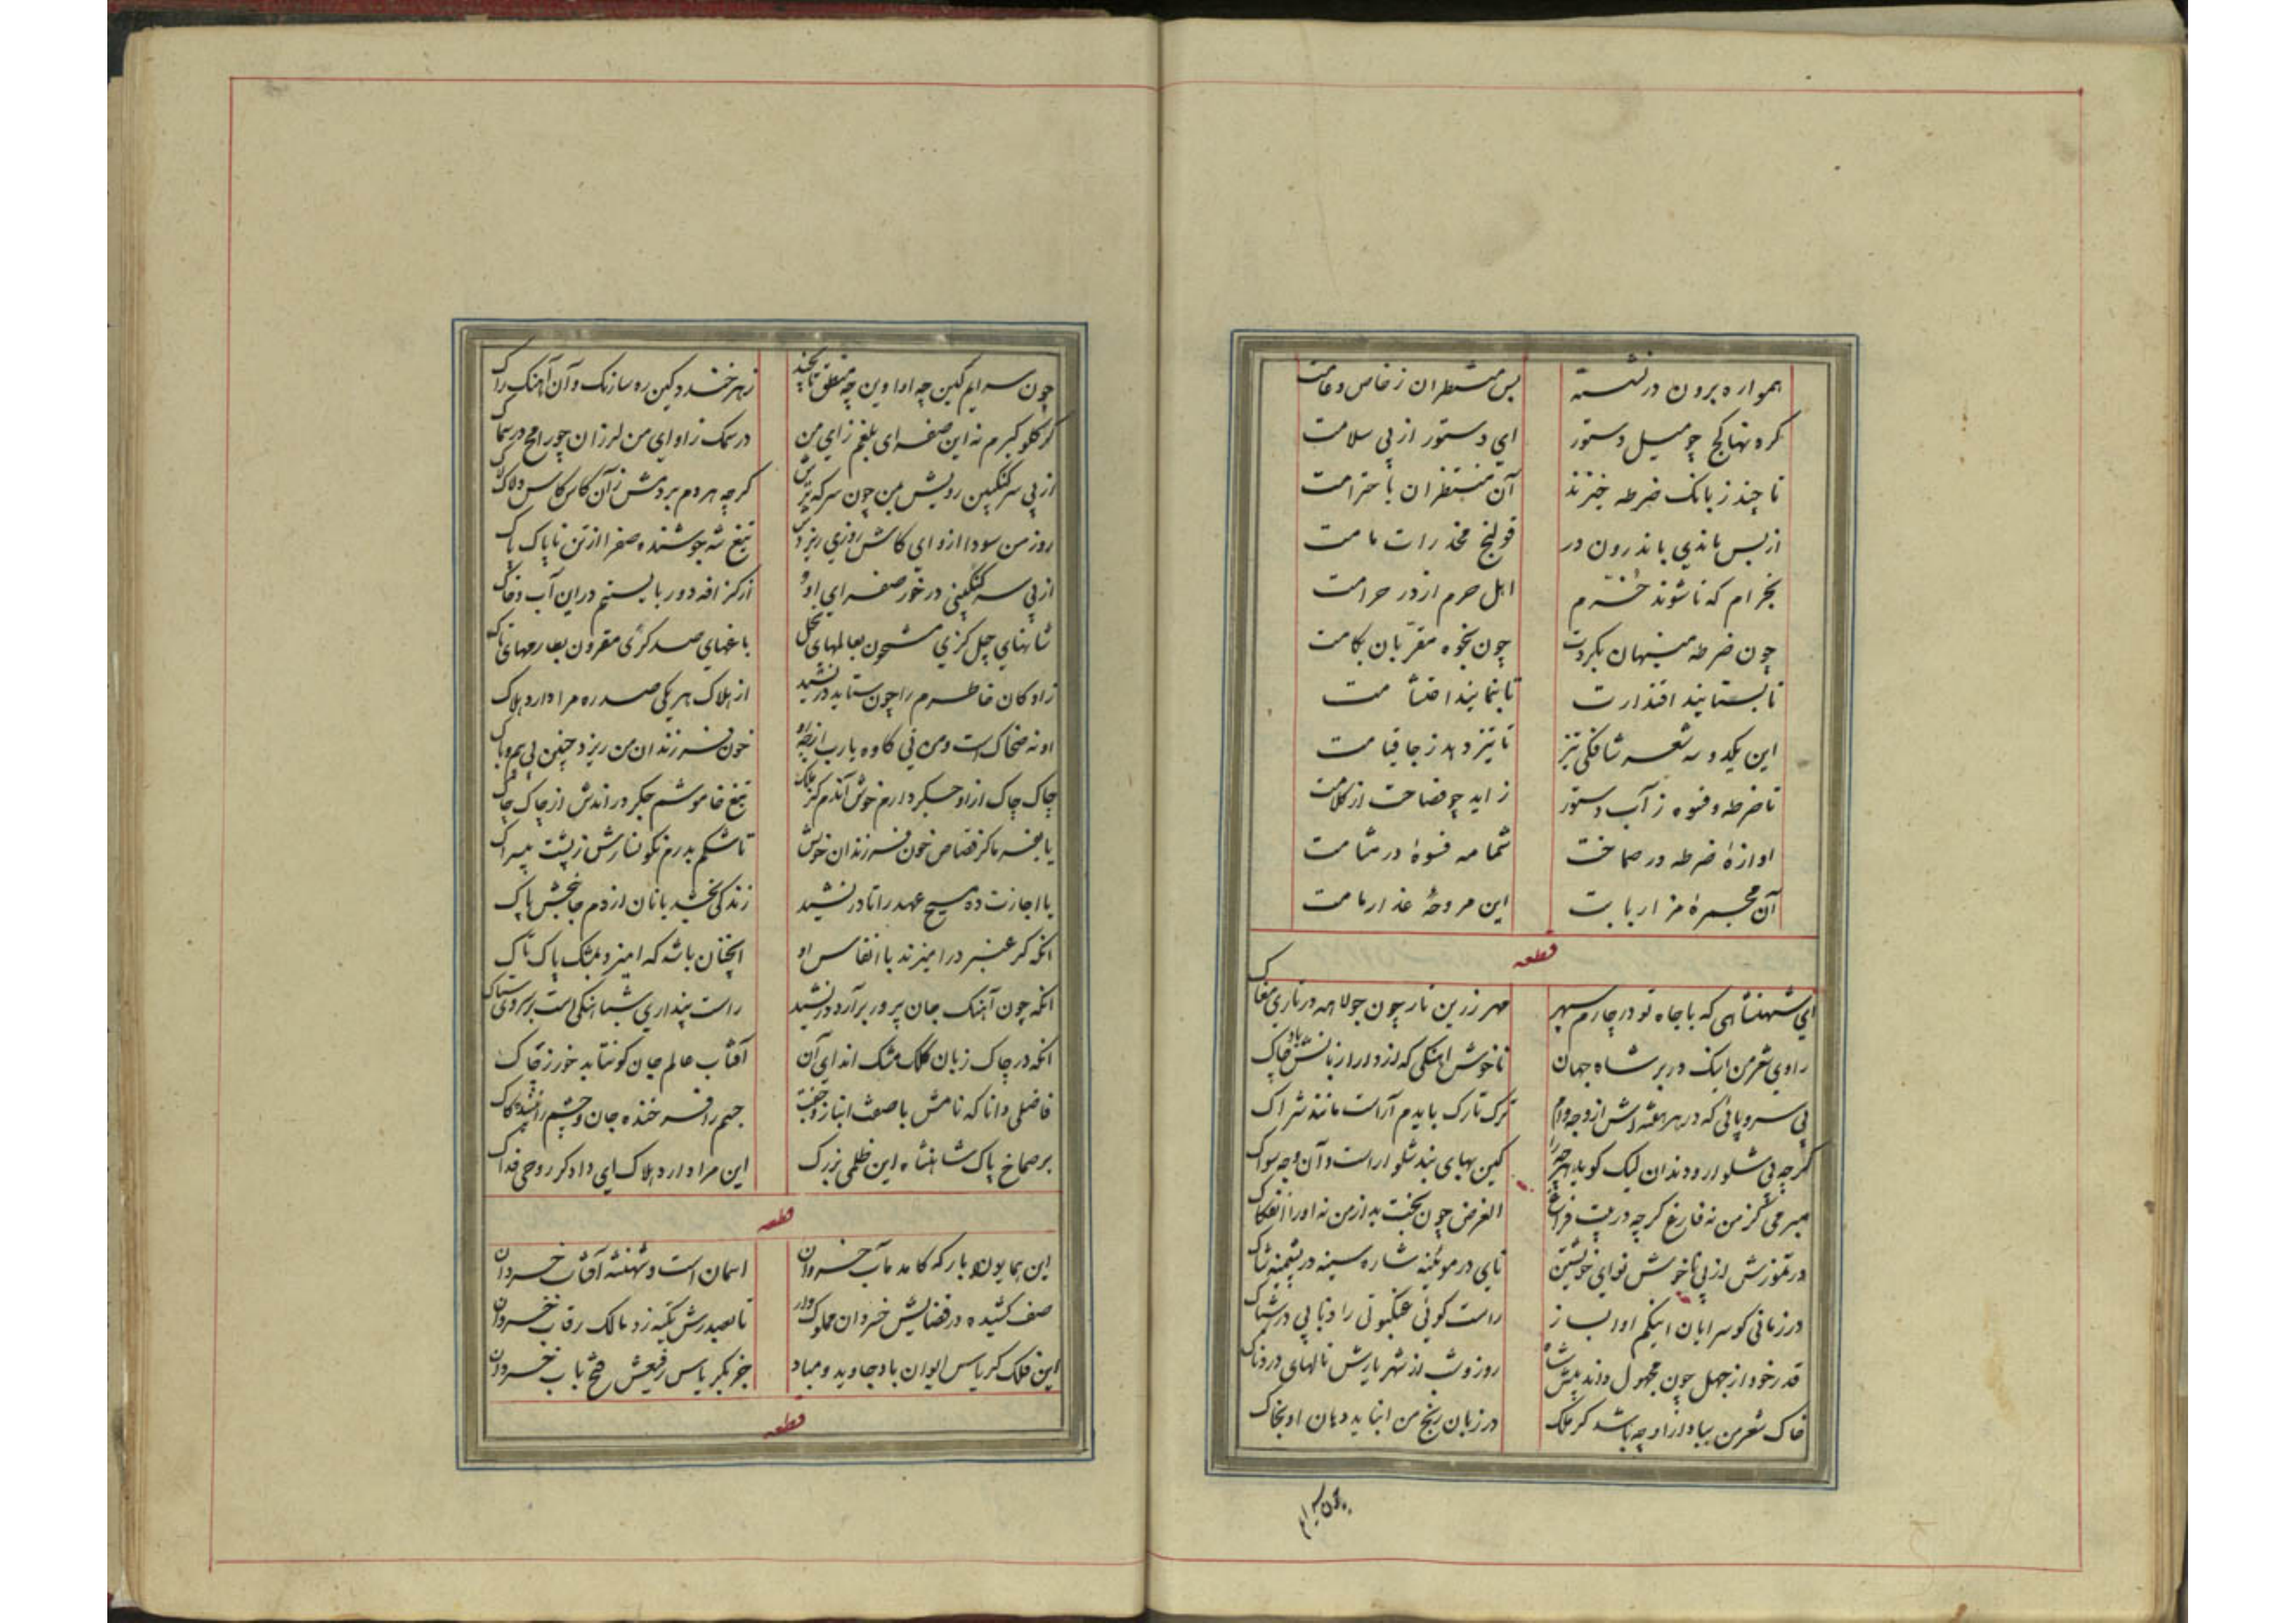 همواره برون در نشسته    بس منتظران ز خاص و عامت
کرده تنها کج چو میل دستور    ای دستور از پی سلامت
تا چند ز بانک ضرطه خیزند    آن منتظران با حترامت
از بس باندی باندرون در    قولنج مخدرات مامت
بخرام که تا شوند خرم    اهل حرم از در حرامت
چون ضرطه منیهان بکردت    چون بخوه مقربان بکامت
تا بستایند اقتدارت    تا بنمایند احتشامت
این یکدو سه شعر    تا تیز دهد ز جا قیامت
تا ضرطه و فسوه ز آب دستور    زاید چو فصاحت از کلامت
اوازهٔ ضرطه در صماخت    شمامه فسوهٔ در مشامت
آن مجمرهٔ مزار بابت    این مروحهٔ عذار مامت
قطعه
ای شهنشاهی که با جاه تو در چارم سپهر    مهر زرین تار چون جولاهه در تاری مغاک
راوی شعر من اینک در بر شاه جهان    ناخوش اهنکی که از دار از بانش باد چاک
بی سر و پائی که در هر هفته اش از وجه وام    ترک تارک بایدم آراست مانند شراک
کرچه بی شلوار و دندان لیک کوید هر چه را    کین بهای بند شلوار است و آن وجه سواک
میرمی کز من نه فارغ کرچه در بیت فراغ    الغرض چون بخت بد از من نه اورا انفکاک
در تموزش از پی ناخوش نوای خویشتن    نای در موئینه شاره سینه در پشمینه شاک
در زمانی کو سرایان اینکم او را بساز    راست کوئی عنکبوتی را ذبابی در شباک
قدر خود از جهل چون مجهول داند پیش شاه    روز و شب از شهریارش نالهای دردناک
خاک شعر من بباد از او چه باشد کر ملک    در زبان رنج من اینابد دهان او بخاک
چون سرایم
چون سرایم کین چه ادا وین چه منطق تا بچند    زهر خندد کین ره سازنک و آن آهنک راک
کر کلو کیرم نه این صفرای بلغم زای من    در سمک ز اوای من لرزان چو رامح در سماک
از پی سرکنکبین رویش من چون سرکه ترش    کرچه هر دم بردمش زان کاس کاس
روز من سودا ازو ای کاش روزی ریزدک    تیغ شه جوشنده صفرا از تن ناپاک پاک
از پی سرکنکبینی در خور صفرای او    از کزافه دور بایستم در این آب و خاک
شانهای چل کزی مشحون بعالمهای نخل    باغهای صد کری مقرون بعارجهای تاک
زادکان خاطرم را چون ستاید در نشید    از هلاک هر یکی صد ره مرا دارد هلاک
او نه ضحاک است و من نی کاوه یارب از چه رو    خون فرزندان من ریزد چنین بی بیم و باک
چاک چاک از او جکر دارم خوش آندم کز ملک    تیغ خاموشم جکر در اندش از چاک چاک
یا بفرما کز قصاص خون فرزندان خویش    تا شکم بدرم نکونسارش ز پشت بیسراک
یا اجازت ده مسیح عهد را تا در نشید    زندکی بخشد بانان از دم جانبخش پاک
انکه کر عنبر در امیزند با انفاس او    انچنان باشد که امیزد بمشک پاک ناک
انکه چون آهنک جان پرور برآرد در نشید    راست پنداری شباهنکی است بر سروی ستاک
انکه در چاک زبان کلک مشک اندای آن    آفتاب عالم جان کو نتابد خور ز چاک
فاضلی دانا که نامش با صفت انباز و جفت    جسم را فر خنده جان و چشم را
بر صماخ پاک شاهنشاه این ظلمی بزرک    این مرا دارد هلاک ای دادکر روحی فداک
قطعه
این همایون بارکه کامد مآب خسروان    اسمان است و شهنشه آفتاب خسروان
صف کشیده در فضایش خسروان مملوک وار    تا بصدرش تکیه زد مالک رقاب خسروان
این فلک کریاس ایوان باد جاوید و مباد    جز بکریاس رفیعش فتح باب خسروان
قطعه